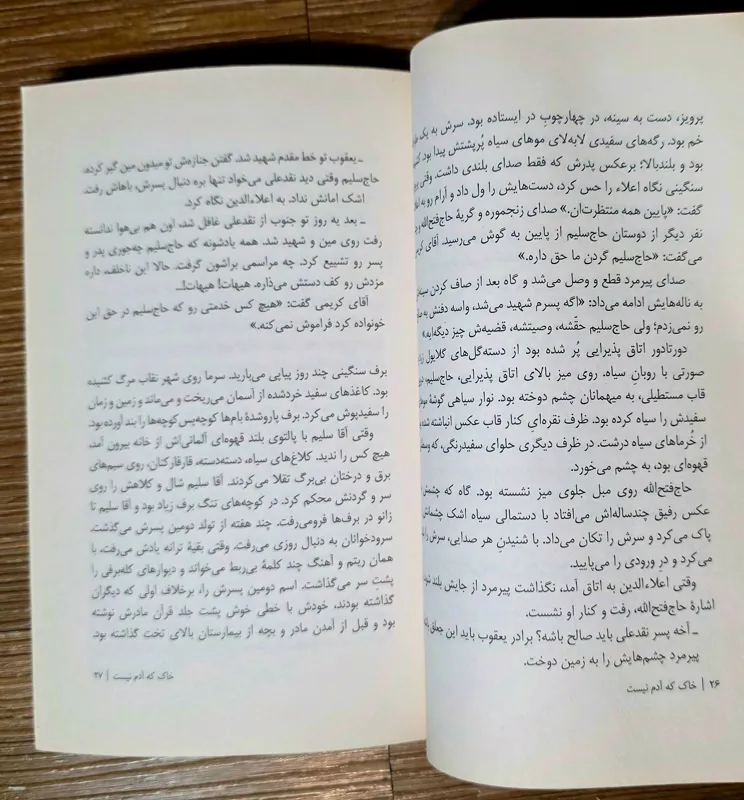 پرویز، دست به سینه، در چهارچوبِ در ایستاده بود. سرش به یک
خم بود. رگه‌های سفیدی لابه‌لای موهای سیاه پُرپشتش پیدا بود.
بود و بلندبالا؛ برعکس پدرش که فقط صدای بلندی داشت. وقتی
سنگینی نگاه اعلاء را حس کرد، دست‌هایش را ول داد و آرام رو به
گفت: «پایین همه منتظرت‌ان.» صدای زنجموره و گریهٔ حاج‌فتح‌الله و
نفر دیگر از دوستان حاج‌سلیم از پایین به گوش می‌رسید. آقای
می‌گفت: «حاج‌سلیم گردن ما حق داره.»
صدای پیرمرد قطع و وصل می‌شد و گاه بعد از صاف کردن
به ناله‌هایش ادامه می‌داد: «اگه پسرم شهید می‌شد، واسه دفنش به
رو نمی‌زدم؛ ولی حاج‌سلیم حقّشه، وصیتشه، قضیه‌ش چیز دیگه‌ایه.»
دورتادور اتاق پذیرایی پُر شده بود از دسته‌گل‌های گلایول
صورتی با روبان سیاه. روی میز بالای اتاق پذیرایی، حاج‌سلیم،
قاب مستطیلی، به میهمانان چشم دوخته بود. نوار سیاهی گوشهٔ
سفیدش را سیاه کرده بود. ظرف نقره‌ایِ کنار قاب عکس انباشته شده
از خُرماهای سیاه درشت. در ظرف دیگری حلوای سفیدرنگی، که
قهوه‌ای بود، به چشم می‌خورد.
حاج‌فتح‌الله روی مبل جلوی میز نشسته بود. گاه که چشمش
عکس رفیق چندساله‌اش می‌افتاد با دستمالی سیاه اشک چشمانش
پاک می‌کرد و سرش را تکان می‌داد. با شنیدنِ هر صدایی، سرش را
می‌کرد و درِ ورودی را می‌پایید.
وقتی اعلاءالدین به اتاق آمد، نگذاشت پیرمرد از جایش بلند
اشارهٔ حاج‌فتح‌الله، رفت و کنار او نشست.
ـ آخه پسر نقدعلی باید صالح باشه؟ برادر یعقوب باید این
پیرمرد چشم‌هایش را به زمین دوخت.
۲۶ | خاک که آدم نیست
ـ یعقوب تو خط مقدم شهید شد. گفتن جنازه‌ش تو میدون مین گیر کرده.
حاج‌سلیم وقتی دید نقدعلی می‌خواد تنها بره دنبال پسرش، باهاش رفت.
اشک امانش نداد. به اعلاءالدین نگاه کرد.
ـ بعد یه روز تو جنوب از نقدعلی غافل شد، اون هم بی‌هوا ندانسته
رفت روی مین و شهید شد. همه یادشونه که حاج‌سلیم چه‌جوری پدر و
پسر رو تشییع کرد. چه مراسمی براشون گرفت. حالا این ناخلف، داره
مزدش رو کف دستش می‌ذاره. هیهات! هیهات!...
آقای کریمی گفت: «هیچ کس خدمتی رو که حاج‌سلیم در حق این
خونواده کرد فراموش نمی‌کنه.»
برف سنگینی چند روز پیاپی می‌بارید. سرما روی شهر نقاب مرگ کشیده
بود. کاغذهای سفید خردشده از آسمان می‌ریخت و می‌ماند و زمین و زمان
را سفیدپوش می‌کرد. برف پاروشدهٔ بام‌ها کوچه‌پس کوچه‌ها را بند آورده بود.
وقتی آقا سلیم با پالتوی بلند قهوه‌ای آلمانی‌اش از خانه بیرون آمد،
هیچ کس را ندید. کلاغ‌های سیاه، دسته‌دسته، قارقارکنان، روی سیم‌های
برق و درختان بی‌برگ تقلا می‌کردند. آقا سلیم شال و کلاهش را روی
سر و گردنش محکم کرد. در کوچه‌های تنگ برف زیاد بود و آقا سلیم تا
زانو در برف‌ها فرومی‌رفت. چند هفته از تولد دومین پسرش می‌گذشت.
سرودخوانان به دنبال روزی می‌رفت. وقتی بقیهٔ ترانه یادش می‌رفت، با
همان ریتم و آهنگ چند کلمهٔ بی‌ربط می‌خواند و دیوارهای کله‌برفی را
پشت سر می‌گذاشت. اسم دومین پسرش را، برخلاف اولی که دیگران
گذاشته بودند، خودش با خطی خوش پشت جلد قرآن مادرش نوشته
بود و قبل از آمدن مادر و بچه از بیمارستان بالای تخت گذاشته بود.
خاک که آدم نیست | ۲۷